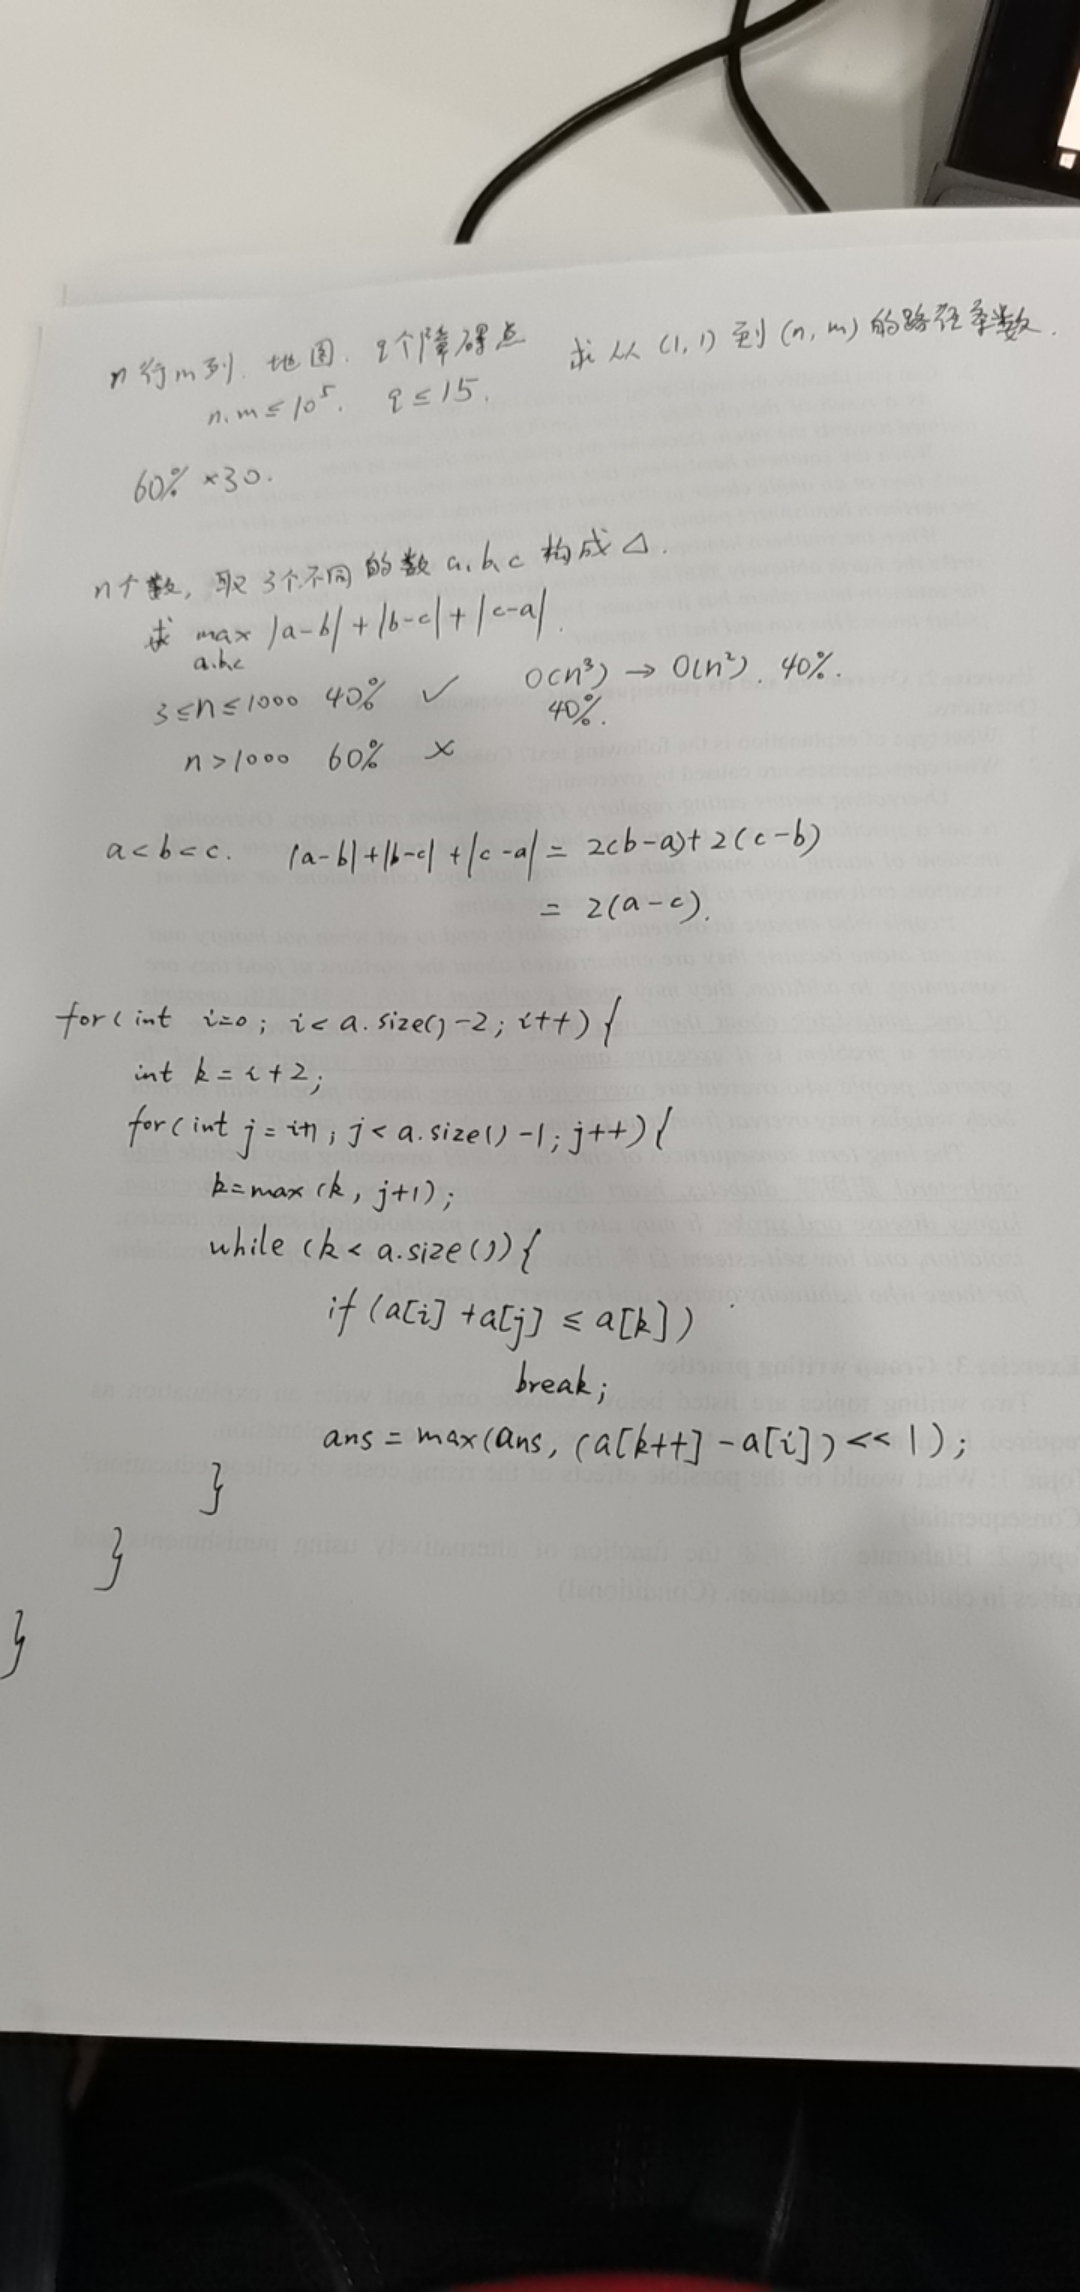 n行m列. 地图. q个障碍点 求从 (1,1) 到 (n,m) 的路径条数.
n,m≤10⁵. q≤15.
60% ×30.
n个数, 取3个不同的数 a,b,c 构成△.
求 max |a-b|+|b-c|+|c-a|.
a.b.c
3≤n≤1000 40% ✓ O(n³) → O(n²). 40%.
40%.
n>1000 60% ×
a<b<c. |a-b|+|b-c|+|c-a| = 2(b-a)+2(c-b)
= 2(a-c).
for(int i=0; i<a.size()-2; i++){
int k=i+2;
for(int j=i+1; j<a.size()-1; j++){
k=max(k, j+1);
while(k<a.size()){
if(a[i]+a[j]≤a[k])
break;
ans=max(ans, (a[k++]-a[i])<<1);
}
}
}